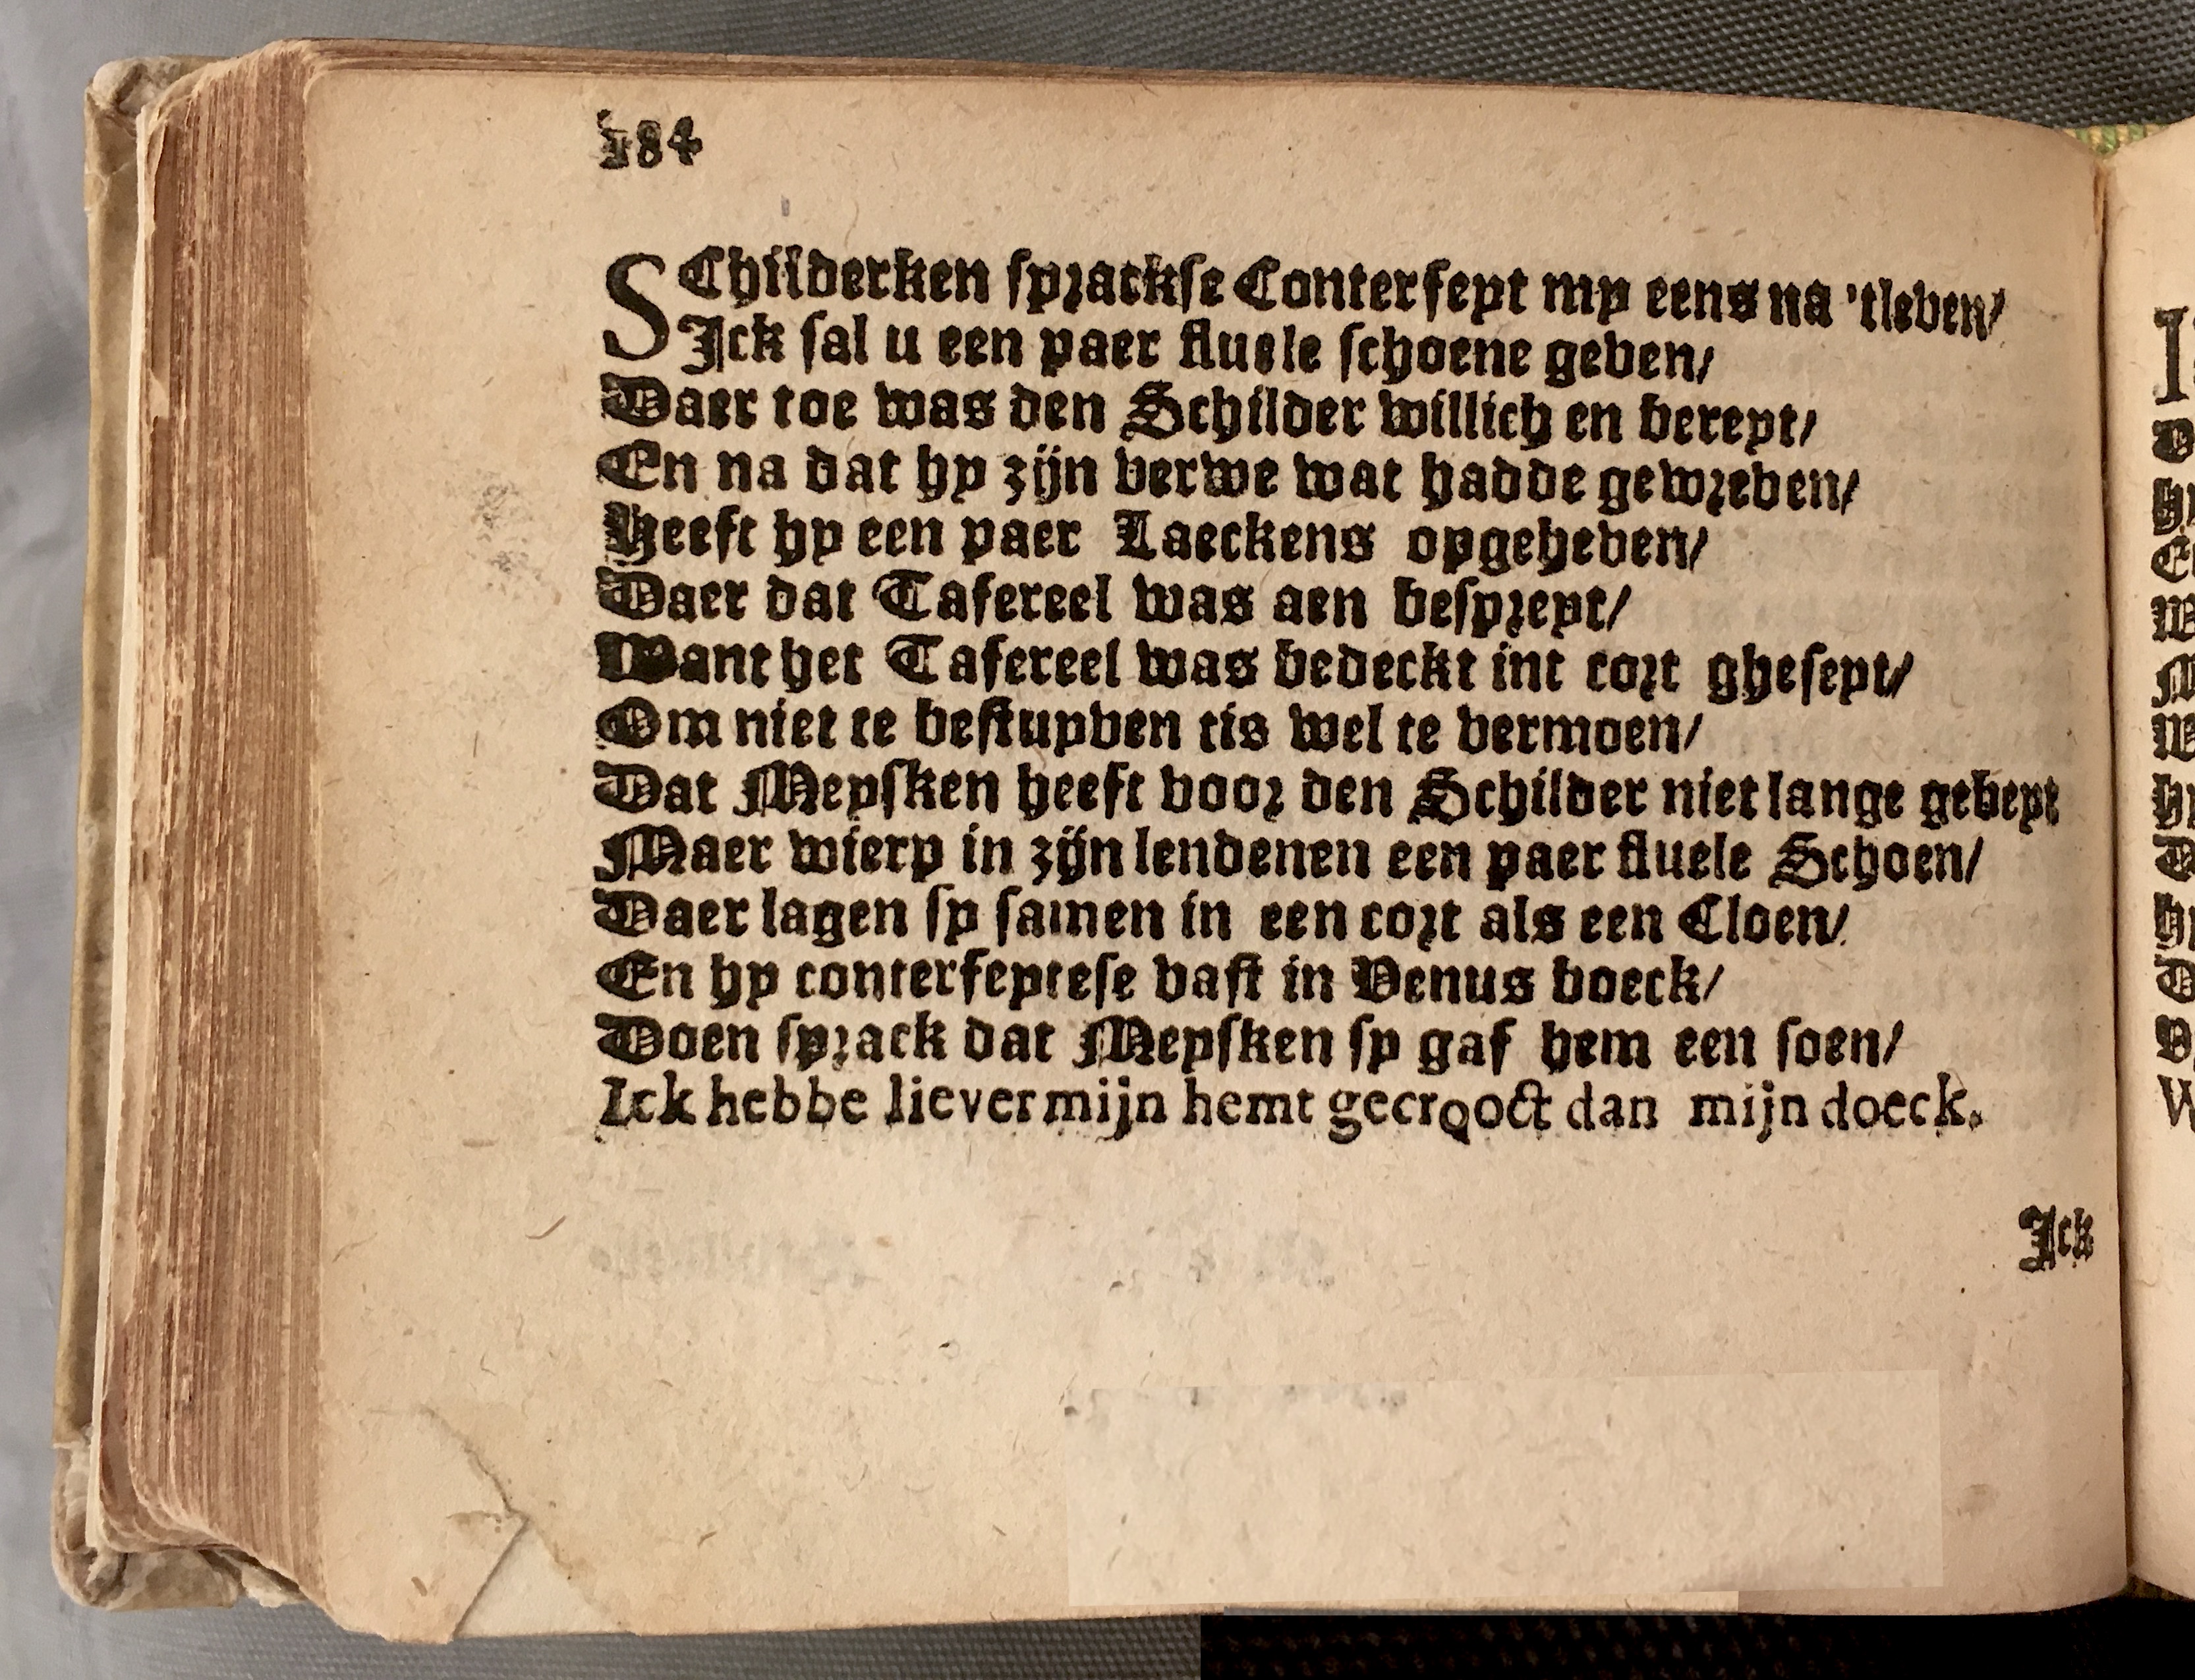 184
SChilderken sprackse Conterfeyt my eens na 'tleven/
Ick sal u een paer fluele schoene geven/
Daer toe was den Schilder willich en bereyt/
En na dat hy zijn verwe wat hadde gewreven/
Heeft hy een paer Laeckens opgeheven/
Daer dat Tafereel was aen bespreyt/
Want het Tafereel was bedeckt int cort gheseyt/
Om niet te bestuyven tis wel te vermoen/
Dat Meysken heeft voor den Schilder niet lange gebeyt
Maer wierp in zijn lendenen een paer fluele Schoen/
Daer lagen sy samen in een cort als een Cloen/
En hy conterfeytese vast in Venus boeck/
Doen sprack dat Meysken sy gaf hem een soen/
Ick hebbe liever mijn hemt gecrooct dan mijn doeck.
Ick